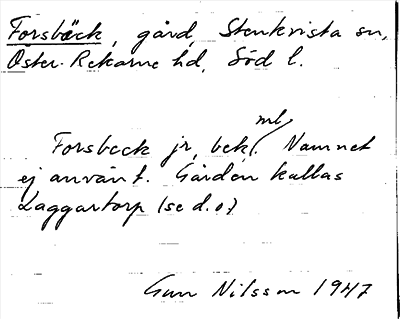 Forsbäck, gård, Stenkvista sn,
Öster-Rekarne hd, Söd l.
Forsbeck jr, bek. ml. Namnet
ej använt. Gården kallas
Laggartorp (se d.o.)
Gun Nilsson 1947